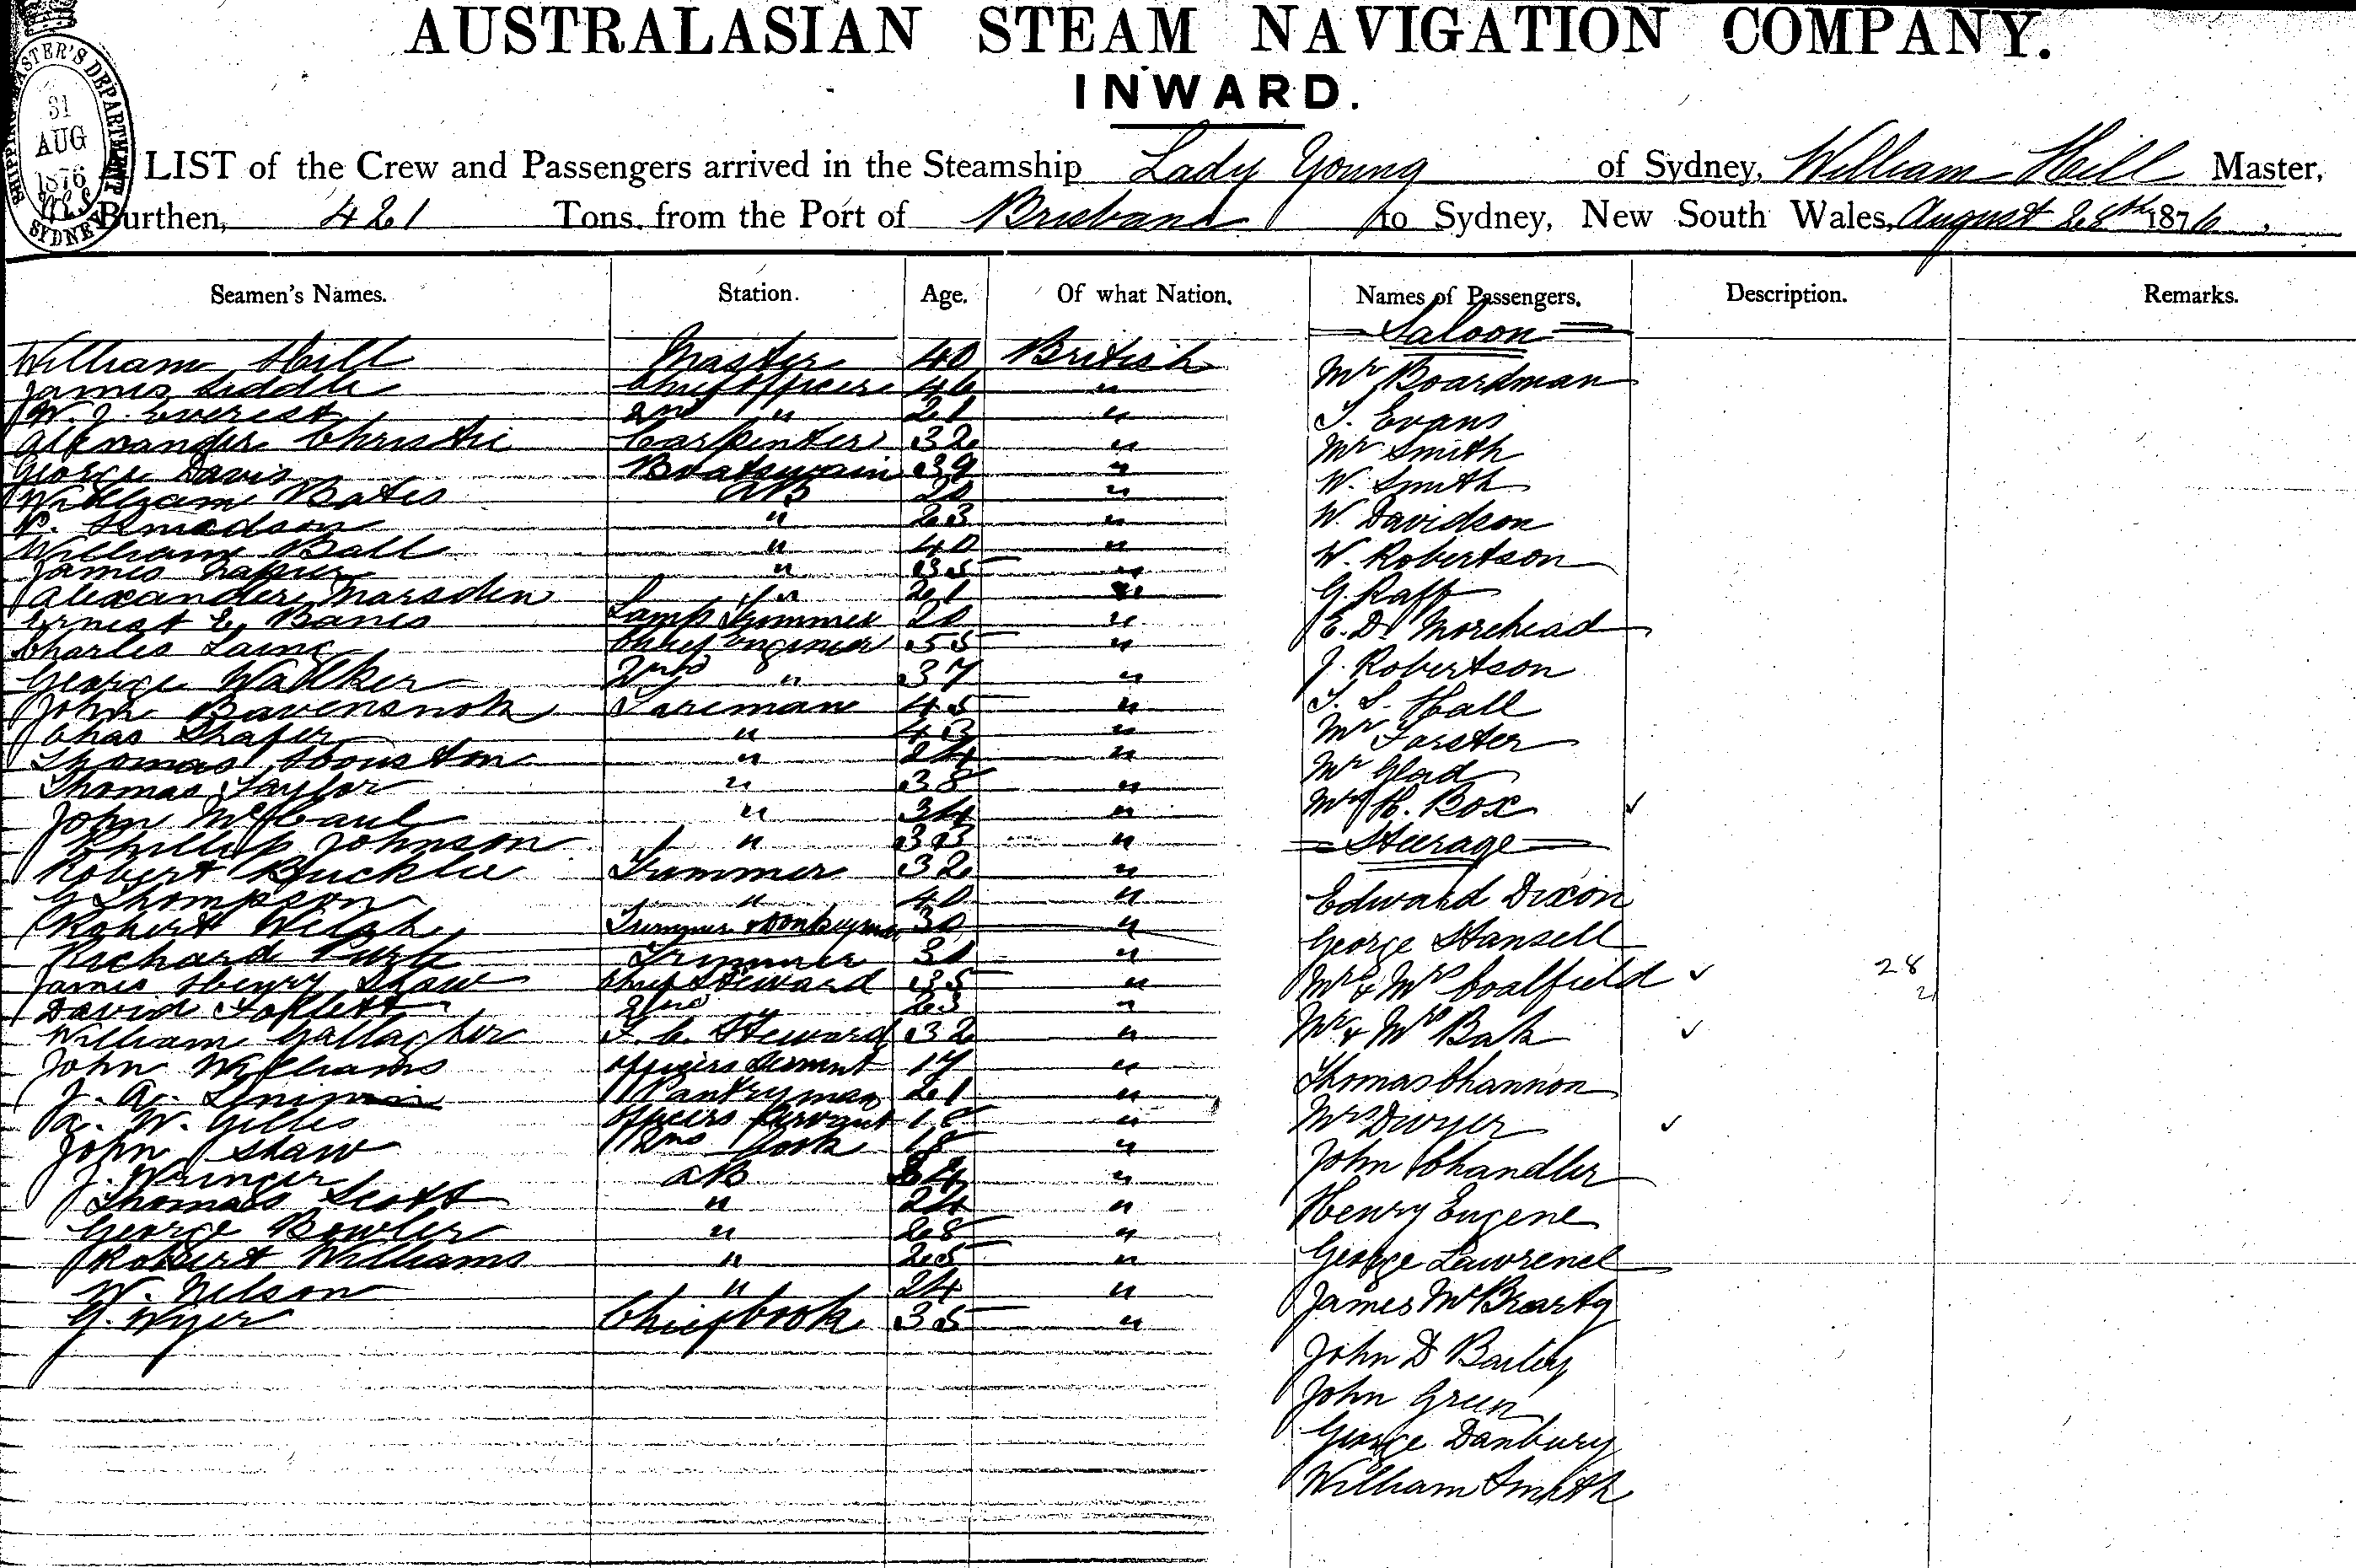 AUSTRALASIAN STEAM NAVIGATION COMPANY.
INWARD.
SHIPPING MASTER'S DEPARTMENT
31
AUG
1876
SYDNEY
LIST of the Crew and Passengers arrived in the Steamship Lady Young of Sydney, William Hill Master,
Burthen, 421 Tons, from the Port of Brisbane to Sydney, New South Wales, August 28th 1876
Seamen's Names. Station. Age. Of what Nation. Names of Passengers. Description. Remarks.
William Hill Master 40 British
James Siddle Chief Officer 46 "
W. J. Everest 2nd " 21 "
Alexander Christie Carpenter 32 "
George Davis Boatswain 39 "
William Bates AB 20 "
P. Amadson " 23 "
William Ball " 40 "
James Napier " 35 "
Alexander Marsden " 21 "
Ernest E. Banes Lamp Trimmer 20 "
Charles Laing Chief Engineer 55 "
George Walker 2nd " 37 "
John Bavensnoth Fireman 45 "
Chas Shafer " 43 "
Thomas Houston " 24 "
Thomas Taylor " 38 "
John McCaul " 34 "
Phillip Johnson " 33 "
Robert Bucklie Trimmer 32 "
G Thompson " 40 "
Robert Welsh Trimmer & Donkeyman 30 "
Richard Turk Trimmer 31 "
James Henry Shaw Chief Steward 35 "
David Follett 2nd " 23 "
William Gallagher F. C. Steward 32 "
John Williams Officers Servant 17 "
J. A. Pantryman 21 "
A. W. Gilles Officers Servant 18 "
John Shaw 2nd Cook 18 "
J. Wringer AB 24 "
Thomas Scott " 24 "
George Bowler " 28 "
Robert Williams " 25 "
W. Nelson " 24 "
G. Wyer Chief Cook 35 "
Saloon
Mr Boardman
T. Evans
Mr Smith
W. Smith
W. Davidson
W. Robertson
G. Raff
E. D. Morehead
J. Robertson
T. S. Hall
Mr Forster
Mr Glad
Mrs H. Box ✓
Steerage
Edward Dixon
George Stansell
Mr & Mrs Coalfield ✓ 28
2
Mr & Mrs Bak ✓
Thomas Channon
Mrs Dwyer ✓
John Chandler
Henry Eugene
George Lawrence
James McBrearty
John D Bailey
John Green
George Danbury
William Smith